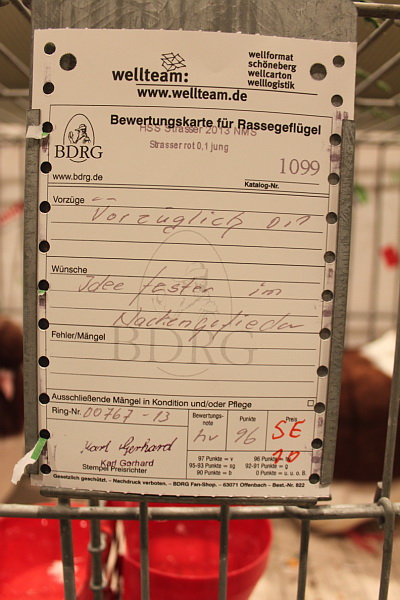 wellteam:
wellformat
schöneberg
wellcarton
welllogistik
www.wellteam.de
Bewertungskarte für Rassegeflügel
HSS Strasser 2013 NMS
Strasser rot 0,1 jung
BDRG
1099
www.bdrg.de
Katalog-Nr.
Vorzüge
Vorzüglich 0,1
Wünsche
Idee fester im
Nackengefieder
BDRG
Fehler/Mängel
Ausschließende Mängel in Kondition und/oder Pflege
Ring-Nr. 00767-13
Bewertungs-note
Punkte
Preis
hv
96
SE
20
Karl Gerhard
Karl Gerhard
Stempel Preisrichter
97 Punkte = v
95-93 Punkte = sg
92-91 Punkte = g
90 Punkte = b
0 Punkte = u. o. B.
Gesetzlich geschützt. – Nachdruck verboten. – BDRG Fan-Shop. – 63071 Offenbach – Best.-Nr. 822